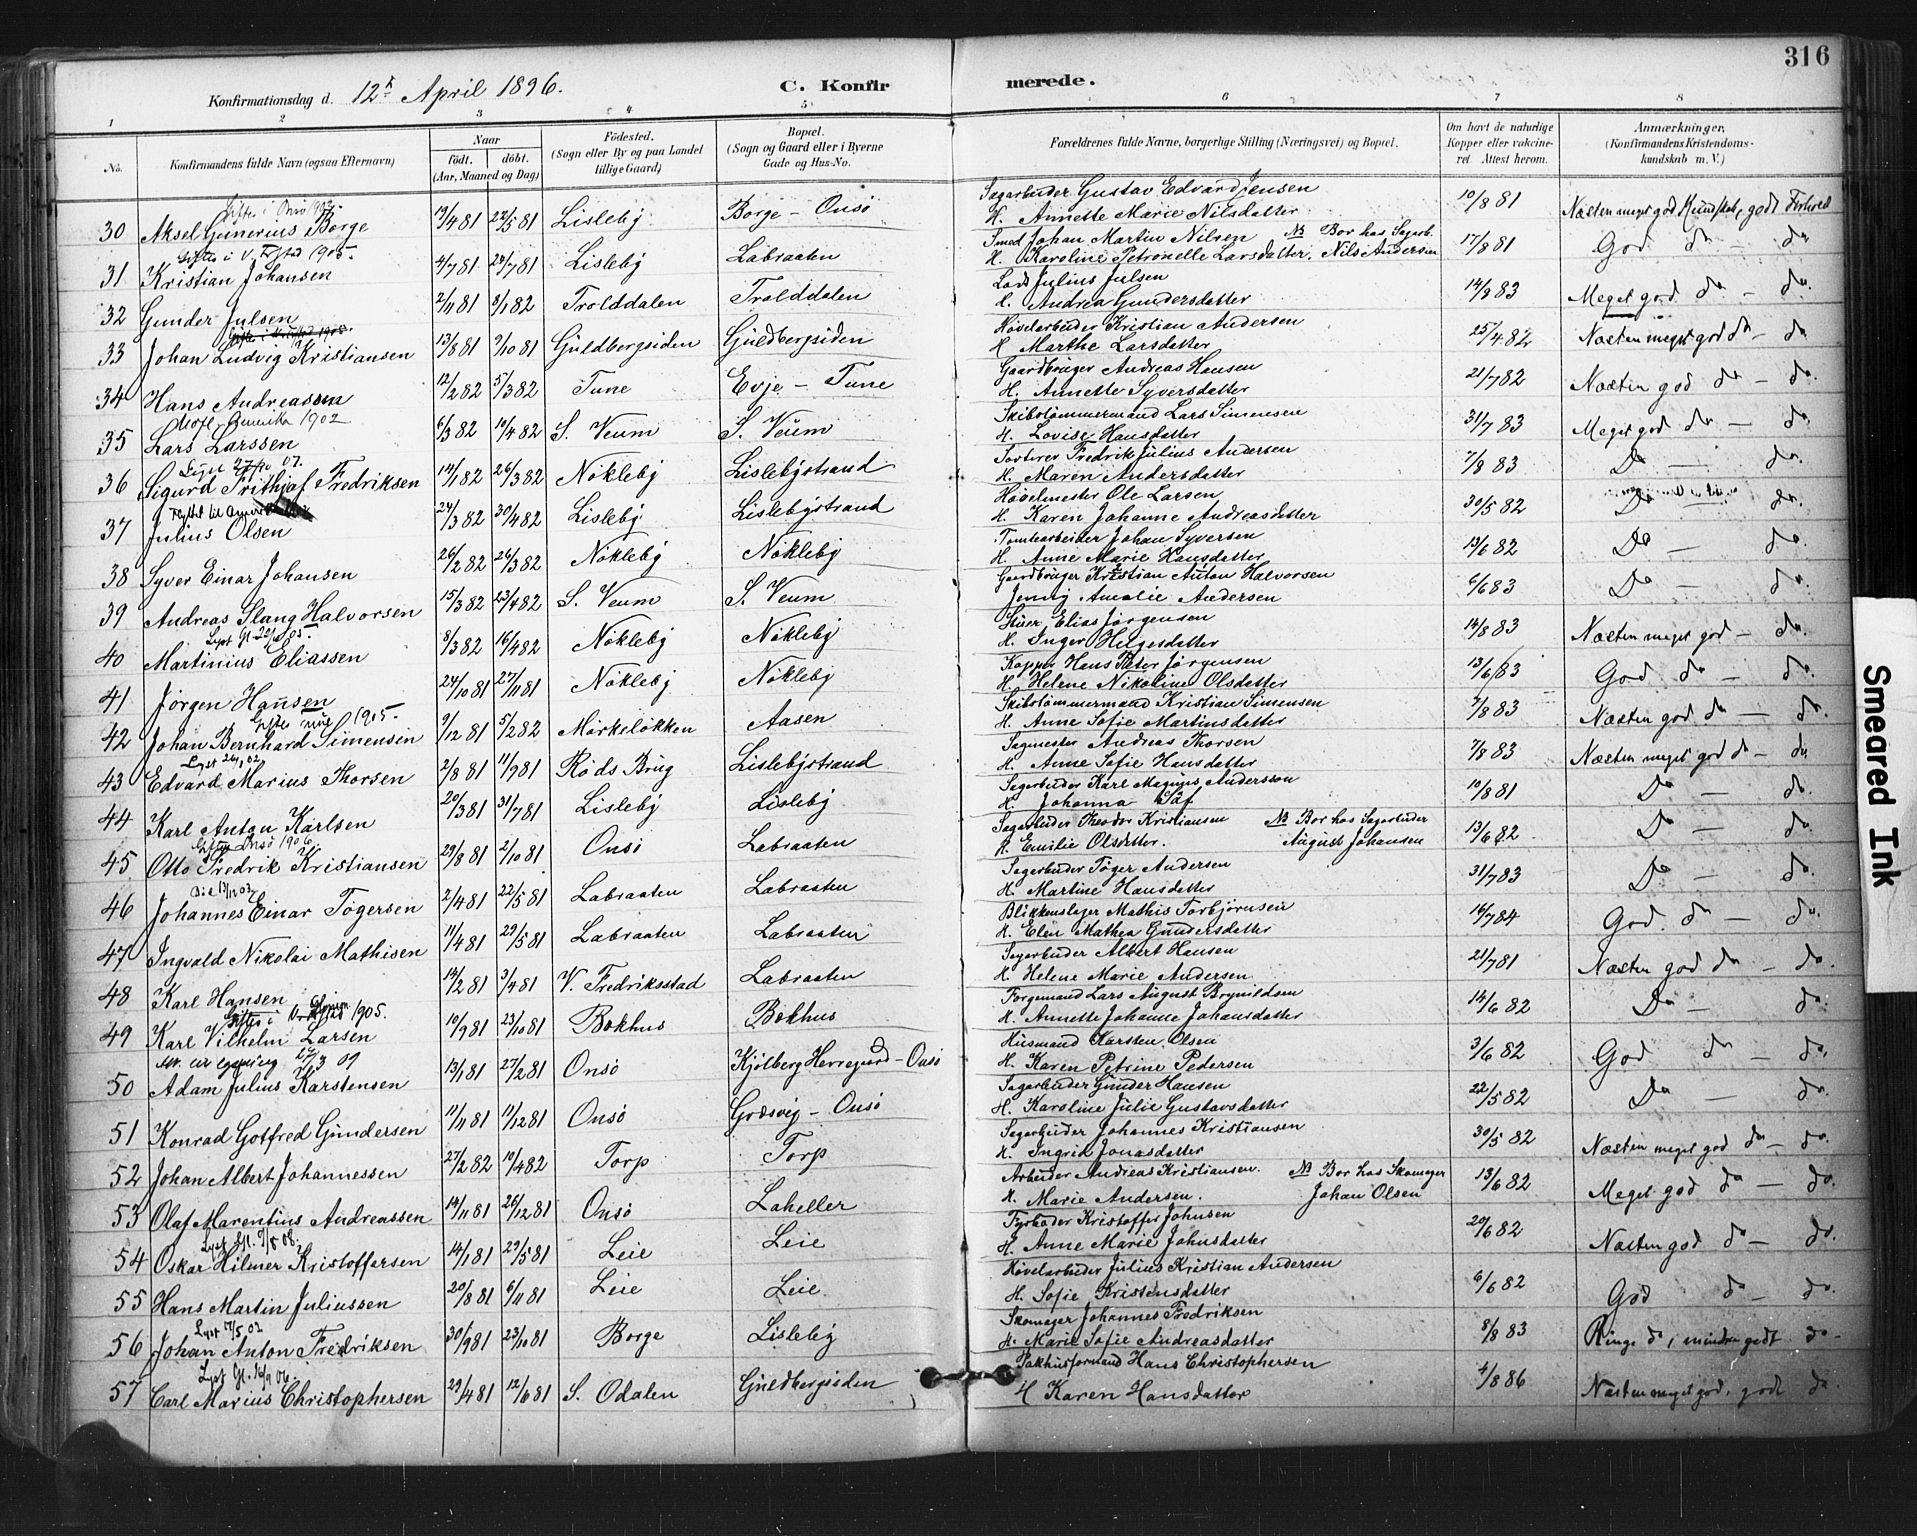 316
Konfirmationsdag d. 12te April 1896. C. Konfirmerede.
1 2 3 4 5 6 7 8
No. Konfirmandens fulde Navn (ogsaa Efternavn) Naar födt. döbt. (Aar, Maaned og Dag) Födested. (Sogn eller By og paa Landet tillige Gaard) Bopæl. (Sogn og Gaard eller i Byerne Gade og Hus-No. Forældrenes fulde Navne, borgerlige Stilling (Næringsvei) og Bopæl. Om havt de naturlige Kopper eller vakcineret. Attest herom. Anmærkninger. (Konfirmandens Kristendomskundskab m. V.)
Gifte i Onsö 1903.
30 Aksel Gunerius Borge 19/4 81 22/5 81 Lisleby Borge - Onsö Sagarbeider Gustav Edvard Jensen H. Annette Marie Nilsdatter 10/8 81 Næsten meget god Kundskab, godt Forhold
Gifte i V. Frstad 1905.
31 Kristian Johansen 4/7 81 24/7 81 Lisleby Labraaten Smed Johan Martin Nilsen H. Karoline Petronelle Larsdatter. NB Bor hos Sagarb. Nils Andersen 17/8 81 God do - do
32 Gunder Julsen 2/11 81 8/1 82 Trolddalen Trolddalen Lods Julius Julsen H. Andrea Gundersdatter 14/8 83 Meget god do - do.
33 Johan Ludvig Kristiansen 13/8 81 9/10 81 Guldbergsiden Guldbergsiden Høvelarbeider Kristian Andersen H Marthe Larsdatter 25/4 82 Næsten meget god do - do
34 Hans Andreassen 12/2 82 5/3 82 Tune Evje - Tune Gaardbruger Andreas Hansen H. Annette Syversdatter 21/7 82 Næsten god do - do.
Amerika 1902
35 Lars Larssen 6/3 82 10/4 82 S. Veum S. Veum Skibstömmermand Lars Simensen H. Lovise Hansdatter 31/7 83 Meget god do - do.
36 Sigurd Frithjof Fredriksen 14/1 82 26/3 82 Nökleby Lislebystrand Sorterer Fredrik Julius Andersen H. Maren Andersdatter 7/8 83 Do - do.
37 Julius Olsen 24/3 82 30/4 82 Lisleby Lislebystrand Høvelmester Ole Larsen H. Karen Johanne Andreasdatter 30/5 82 Do - do.
38 Syver Einar Johansen 26/2 82 26/3 82 Nökleby Nökleby Tomtearbeider Johan Syversen H. Anne Marie Hansdatter 13/6 82 Do - do.
39 Andreas Slang Halvorsen 15/3 82 23/4 82 S. Veum S. Veum Gaardbruger Kristian Anton Halvorsen Jenny Amalie Andersen 6/6 83 Do - do.
40 Martinius Eliassen 8/3 82 16/4 82 Nökleby Nökleby Elias Jörgensen H. Inger Helgesdatter 14/8 83 Næsten meget god - do.
41 Jörgen Hansen 24/10 81 27/11 81 Nökleby Nökleby Hans Peter Jørgensen H. Helene Nikoline Olsdatter 13/6 83 God do - do.
1905.
42 Johan Bernhard Simensen 9/12 81 5/2 82 Mörkelökken Aasen Skibstömmermand Kristian Simensen H. Anne Sofie Martinsdatter 7/8 83 Næsten god do - do.
43 Edvard Marius Thorsen 2/8 81 11/9 81 Röds Brug Lislebystrand Sagmester Andreas Thorsen H. Anne Sofie Hansdatter 7/8 83 Næsten meget god do - do
44 Karl Anton Karlsen 20/3 81 31/7 81 Lisleby Lisleby Sagarbeider Karl Magnus Andersson H. Johanna 10/8 81 Do - do.
Gifte Onsö 1906
45 Otto Fredrik Kristiansen 29/8 81 2/10 81 Onsö Labraaten Sagarbeider Theodor Kristiansen H. Emilie Olsdatter. NB Bor hos Sagarbeider August Johansen 13/6 82 Do - do.
46 Johannes Einar Tögersen 2/4 81 22/5 81 Labraaten Labraaten Sagarbeider Töger Andersen H. Martine Hansdatter 31/7 83 Do - do.
47 Ingvald Nikolai Mathisen 11/4 81 29/5 81 Labraaten Labraaten Blikkenslager Mathis Torbjörnsen H. Elen Mathea Gundersdatter 16/7 84 God. do - do.
48 Karl Hansen 14/2 81 3/4 81 V. Fredriksstad Labraaten Sagarbeider Albert Hansen H. Helene Marie Andersen 21/7 81 Næsten god do - do.
Gifte i 1905.
49 Karl Vilhelm Larsen 10/9 81 23/10 81 Bøkhus Bøkhus Formand Lars August Brynildsen H. Annette Johanne Johansdatter 14/6 82 Do - do.
50 Adam Julius Karstensen 13/1 81 27/2 81 Onsö Kjölberg Herregaard - Onsö Husmand Karsten Olsen H. Karen Petrine Pedersen 3/6 82 God do - do.
51 Konrad Gotfred Gundersen 11/11 81 11/12 81 Onsö Græsvig - Onsö Sagarbeider Gunder Hansen H. Karoline Julie Gustavsdatter 22/5 82 Do - do.
52 Johan Albert Johannessen 27/2 82 10/4 82 Torp Torp Sagarbeider Johannes Kristiansen H. Ingrid Jonasdatter 30/5 82 Næsten meget god do - do.
53 Olaf Marentius Andreassen 14/11 81 26/12 81 Onsö Laheller Arbeider Andreas Kristiansen. H. Marie Andersen. NB Bor hos Skomager Johan Olsen 13/6 82 Meget god do - do.
54 Oskar Hilmer Kristoffersen 14/1 81 29/5 81 Leie Leie Fyrböder Kristoffer Johnsen H. Anne Marie Johnsdatter 20/6 82 Næsten god do - do.
55 Hans Martin Juliussen 20/8 81 6/11 81 Leie Leie Høvelarbeider Julius Kristian Andersen H. Sofie Kristensdatter 6/6 82 God do - do.
Lyst 17/5 02
56 Johan Anton Fredriksen 30/9 81 23/10 81 Borge Lisleby Skomager Johannes Fredriksen H. Marie Sofie Andreasdatter 8/8 83 Ringe do, mindre godt do -
57 Carl Marius Christophersen 29/4 81 12/6 81 S. Odalen Guldbergsiden Pakhusformand Hans Christophersen H Karen Hansdatter 4/8 86 Næsten meget god, godt do
Smeared Ink